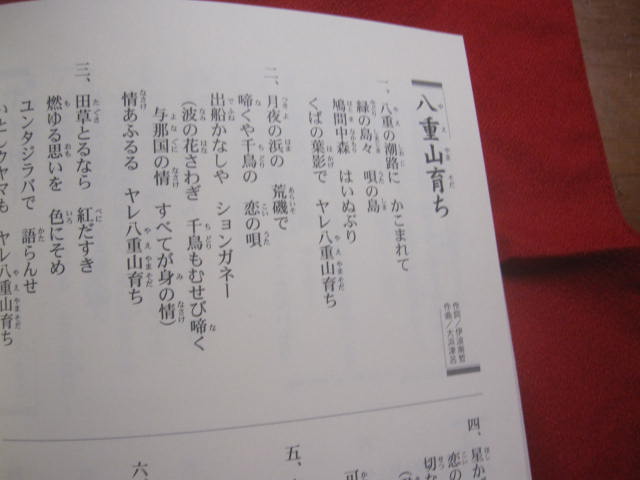 八重山育ち
作詞/伊波南哲
作曲/大浜津呂
一、八重の潮路に かこまれて
緑の島々 唄の島
鳩間中森 はいぬぶり
くばの葉影で ヤレ八重山育ち
二、月夜の浜の 荒磯で
啼くや千鳥の 恋の唄
出船かなしや ションガネー
(波の花さわぎ 千鳥もむせび啼く
与那国の情 すべてが身の情)
情あふるる ヤレ八重山育ち
三、田草とるなら 紅だすき
燃ゆる思いを 色にそめ
ユンタジラバで 語らんせ
いとしクヤマも ヤレ八重山育ち
四、星か
恋の
切な
五、
可
六、